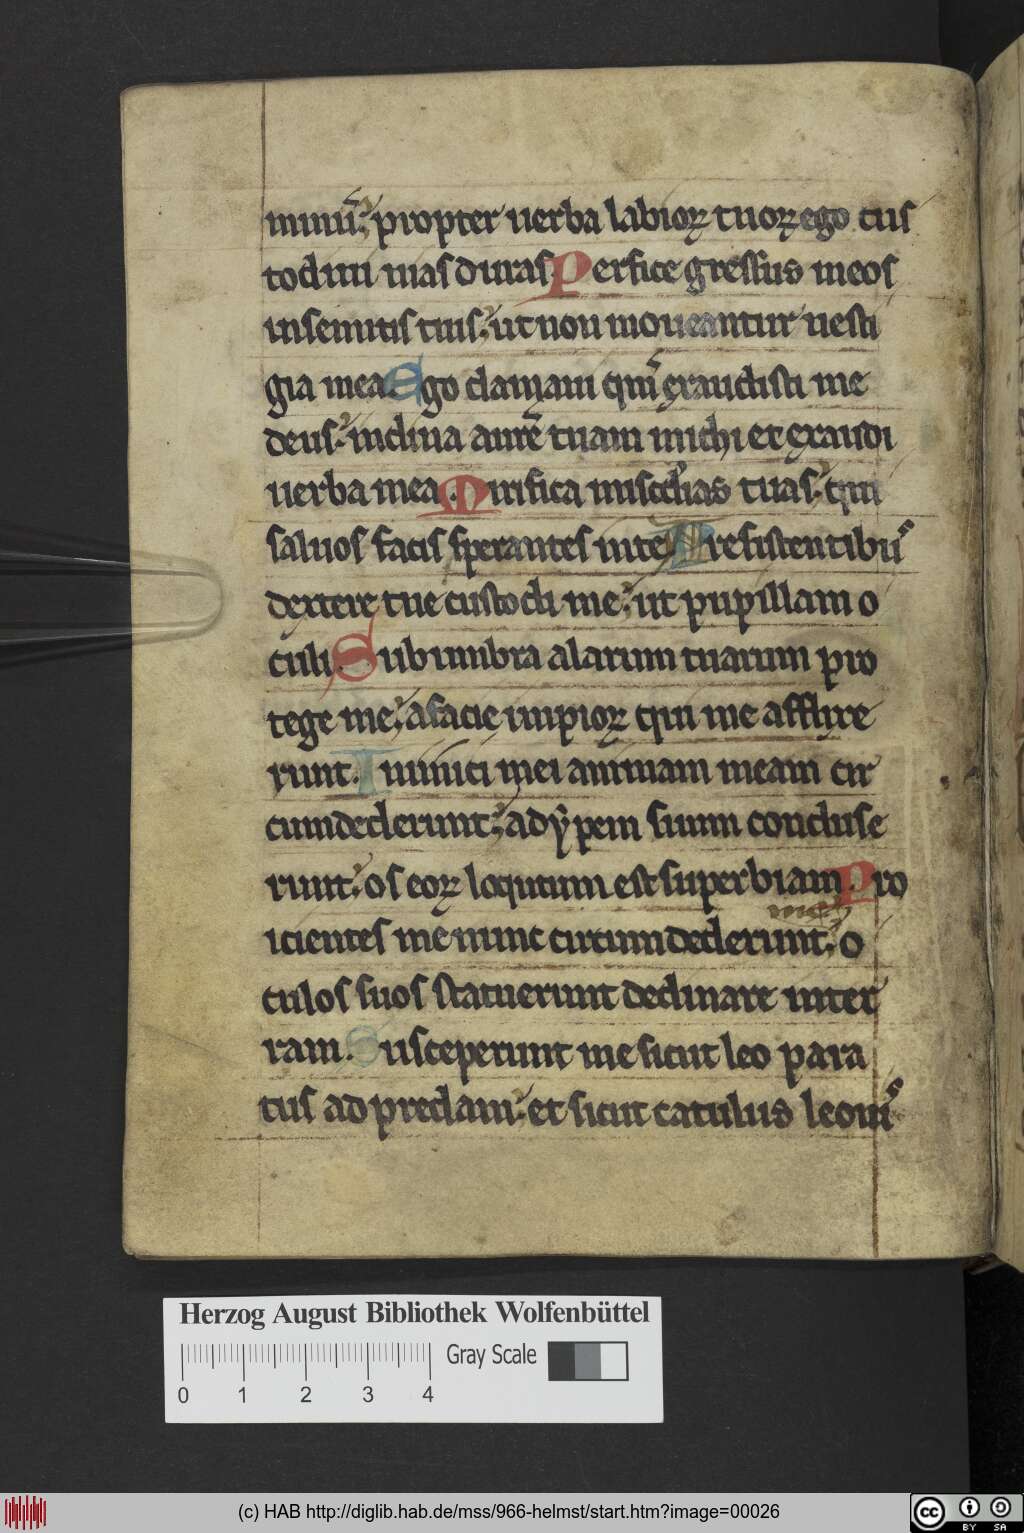 minū; propter uerba labioꝝ tuoꝝ ego cus
todiui uias duras. Perfice gressus meos
in semitis tuis; ut non moueantur uesti
gia mea. Ego clamaui qm̄ exaudisti me
deus; inclina aurē tuam michi et exaudi
uerba mea. Mirifica mis̄cdias tuas; qui
saluos facis sperantes in te. A resistentibꝰ
dextere tue custodi me; ut pupillam o
culi. Sub umbra alarum tuarum pro
tege me; a facie impioꝝ qui me afflixe
runt. Inimici mei animam meam cir
cumdederunt; adypem suum concluse
runt; os eoꝝ loqutum est superbiam. Pro
icientes me nunc circumdederunt; o
culos suos statuerunt declinare in ter
ram. Susceperunt me sicut leo para
tus ad predam; et sicut catulus leonis
Herzog August Bibliothek Wolfenbüttel
Gray Scale
0 1 2 3 4
(c) HAB http://diglib.hab.de/mss/966-helmst/start.htm?image=00026
cc BY SA